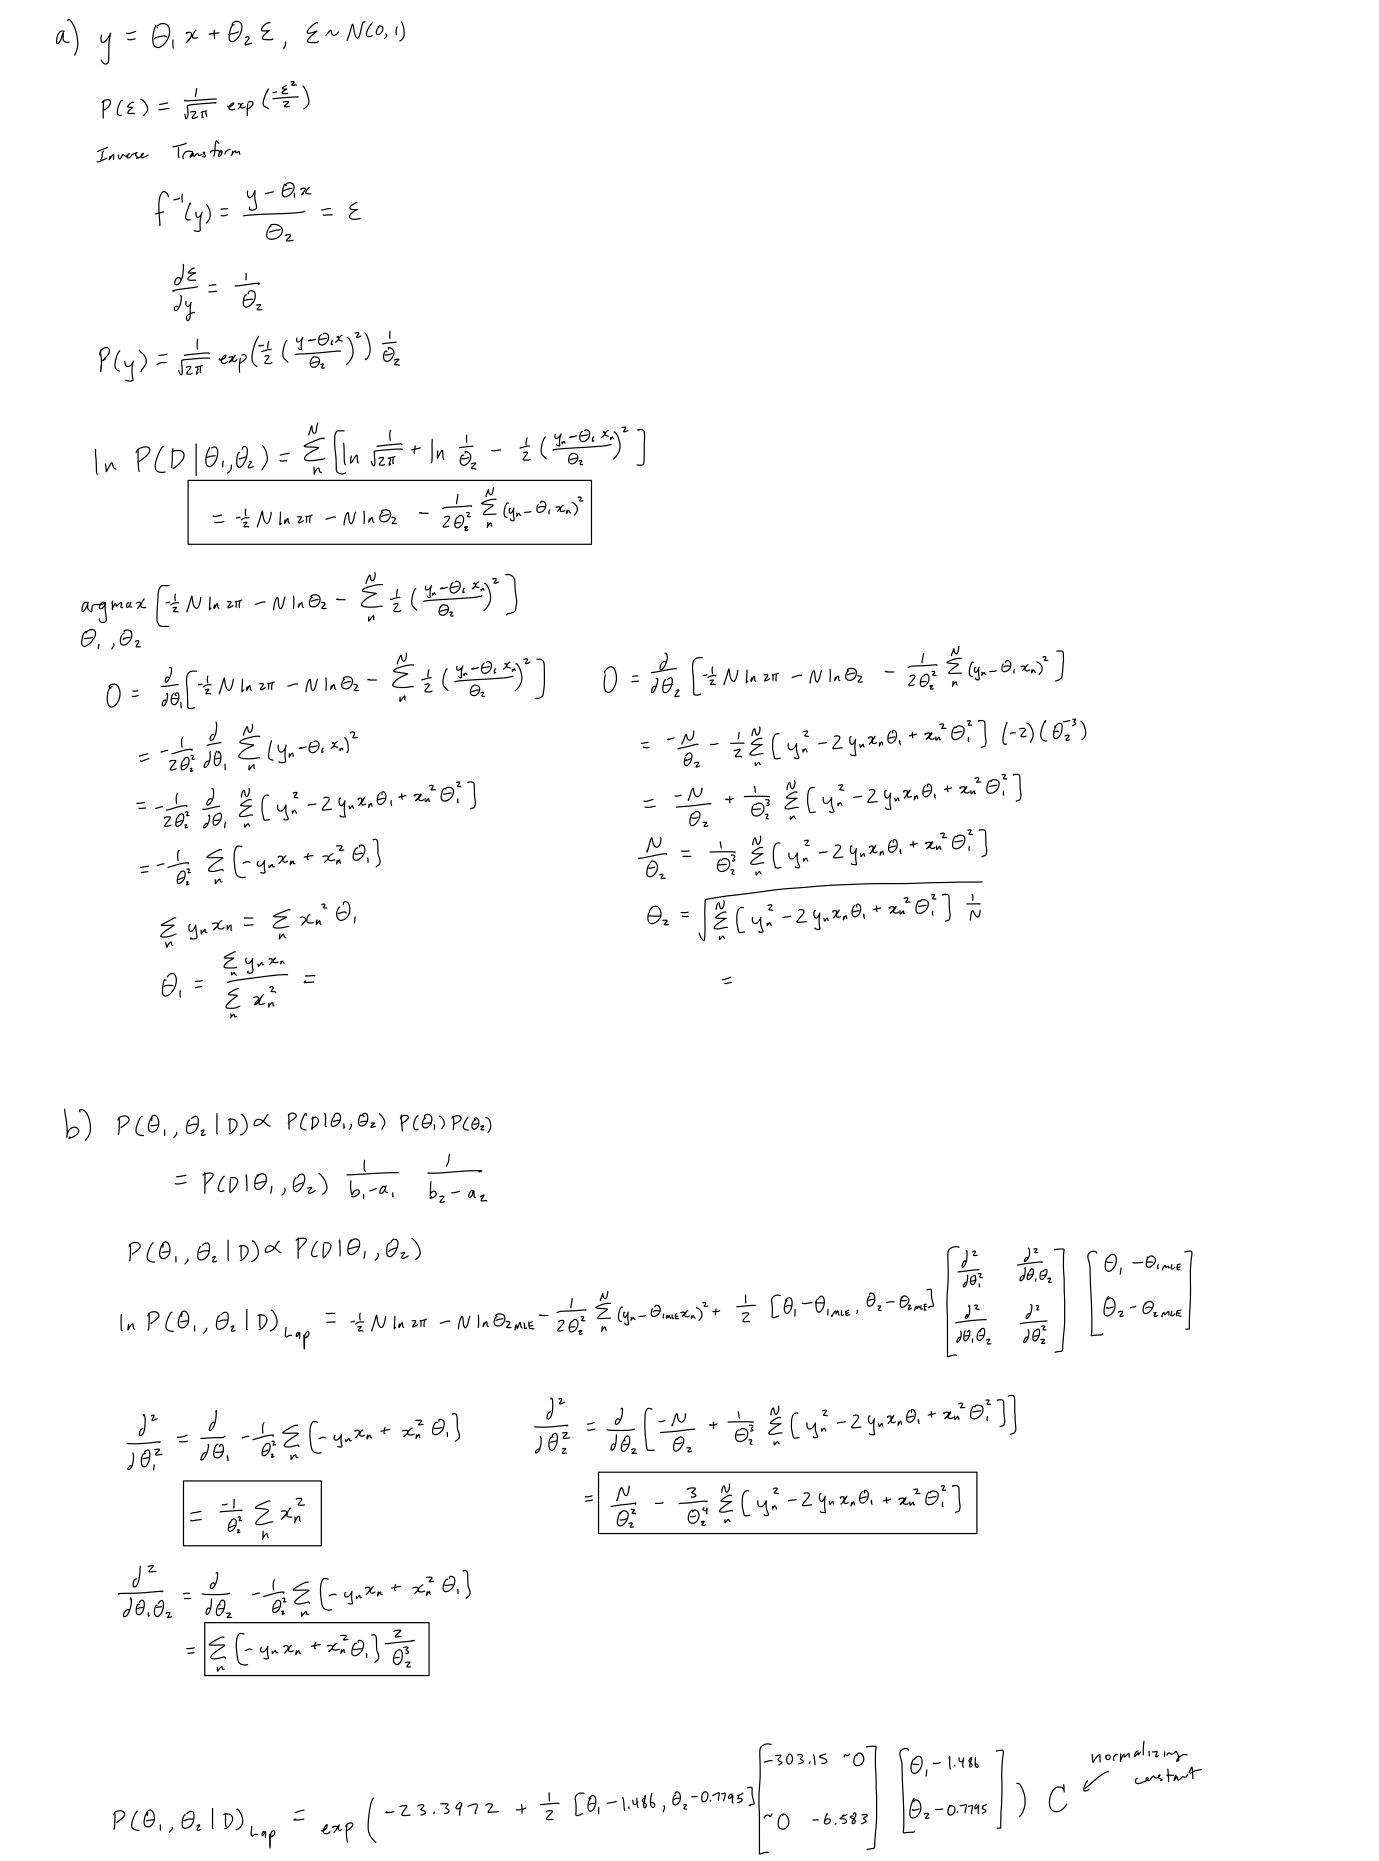 a) y = θ₁x + θ₂ε, ε ~ N(0, 1)
P(ε) = 1/√2π exp(-ε²/2)
Inverse Transform
f⁻¹(y) = (y - θ₁x)/θ₂ = ε
dε/dy = 1/θ₂
P(y) = 1/√2π exp(-1/2 ((y-θ₁x)/θ₂)²) 1/θ₂
ln P(D|θ₁,θ₂) = Σₙᴺ [ln 1/√2π + ln 1/θ₂ - 1/2 ((yₙ-θ₁xₙ)/θ₂)²]
= -1/2 N ln 2π - N ln θ₂ - 1/2θ₂² Σₙᴺ (yₙ-θ₁xₙ)²
argmax [-1/2 N ln 2π - N ln θ₂ - Σₙᴺ 1/2 ((yₙ-θ₁xₙ)/θ₂)²]
θ₁, θ₂
0 = ∂/∂θ₁ [-1/2 N ln 2π - N ln θ₂ - Σₙᴺ 1/2 ((yₙ-θ₁xₙ)/θ₂)²]
= -1/2θ₂² ∂/∂θ₁ Σₙᴺ (yₙ-θ₁xₙ)²
= -1/2θ₂² ∂/∂θ₁ Σₙᴺ [yₙ² - 2yₙxₙθ₁ + xₙ²θ₁²]
= -1/θ₂² Σₙ [-yₙxₙ + xₙ²θ₁]
Σₙ yₙxₙ = Σₙ xₙ²θ₁
θ₁ = Σₙ yₙxₙ / Σₙ xₙ² =
0 = ∂/∂θ₂ [-1/2 N ln 2π - N ln θ₂ - 1/2θ₂² Σₙᴺ (yₙ-θ₁xₙ)²]
= -N/θ₂ - 1/2 Σₙᴺ [yₙ² - 2yₙxₙθ₁ + xₙ²θ₁²] (-2)(θ₂⁻³)
= -N/θ₂ + 1/θ₂³ Σₙᴺ [yₙ² - 2yₙxₙθ₁ + xₙ²θ₁²]
N/θ₂ = 1/θ₂³ Σₙᴺ [yₙ² - 2yₙxₙθ₁ + xₙ²θ₁²]
θ₂ = √(Σₙᴺ [yₙ² - 2yₙxₙθ₁ + xₙ²θ₁²] 1/N)
=
b) P(θ₁, θ₂|D) ∝ P(D|θ₁, θ₂) P(θ₁) P(θ₂)
= P(D|θ₁, θ₂) 1/(b₁-a₁) 1/(b₂-a₂)
P(θ₁, θ₂|D) ∝ P(D|θ₁, θ₂)
ln P(θ₁, θ₂|D)Lap = -1/2 N ln 2π - N ln θ₂MLE - 1/2θ₂² Σₙᴺ (yₙ-θ₁MLExₙ)² + 1/2 [θ₁-θ₁MLE, θ₂-θ₂MLE] [∂²/∂θ₁² ∂²/∂θ₁θ₂ ; ∂²/∂θ₁θ₂ ∂²/∂θ₂²] [θ₁-θ₁MLE ; θ₂-θ₂MLE]
∂²/∂θ₁² = ∂/∂θ₁ -1/θ₂² Σₙ [-yₙxₙ + xₙ²θ₁]
= -1/θ₂² Σₙ xₙ²
∂²/∂θ₂² = ∂/∂θ₂ [-N/θ₂ + 1/θ₂³ Σₙᴺ [yₙ² - 2yₙxₙθ₁ + xₙ²θ₁²]]
= N/θ₂² - 3/θ₂⁴ Σₙᴺ [yₙ² - 2yₙxₙθ₁ + xₙ²θ₁²]
∂²/∂θ₁θ₂ = ∂/∂θ₂ -1/θ₂² Σₙ [-yₙxₙ + xₙ²θ₁]
= Σₙ [-yₙxₙ + xₙ²θ₁] 2/θ₂³
P(θ₁, θ₂|D)Lap = exp(-23.3972 + 1/2 [θ₁-1.486, θ₂-0.7795] [-303.15 ~0 ; ~0 -6.583] [θ₁-1.486 ; θ₂-0.7795]) C
normalizing
constant